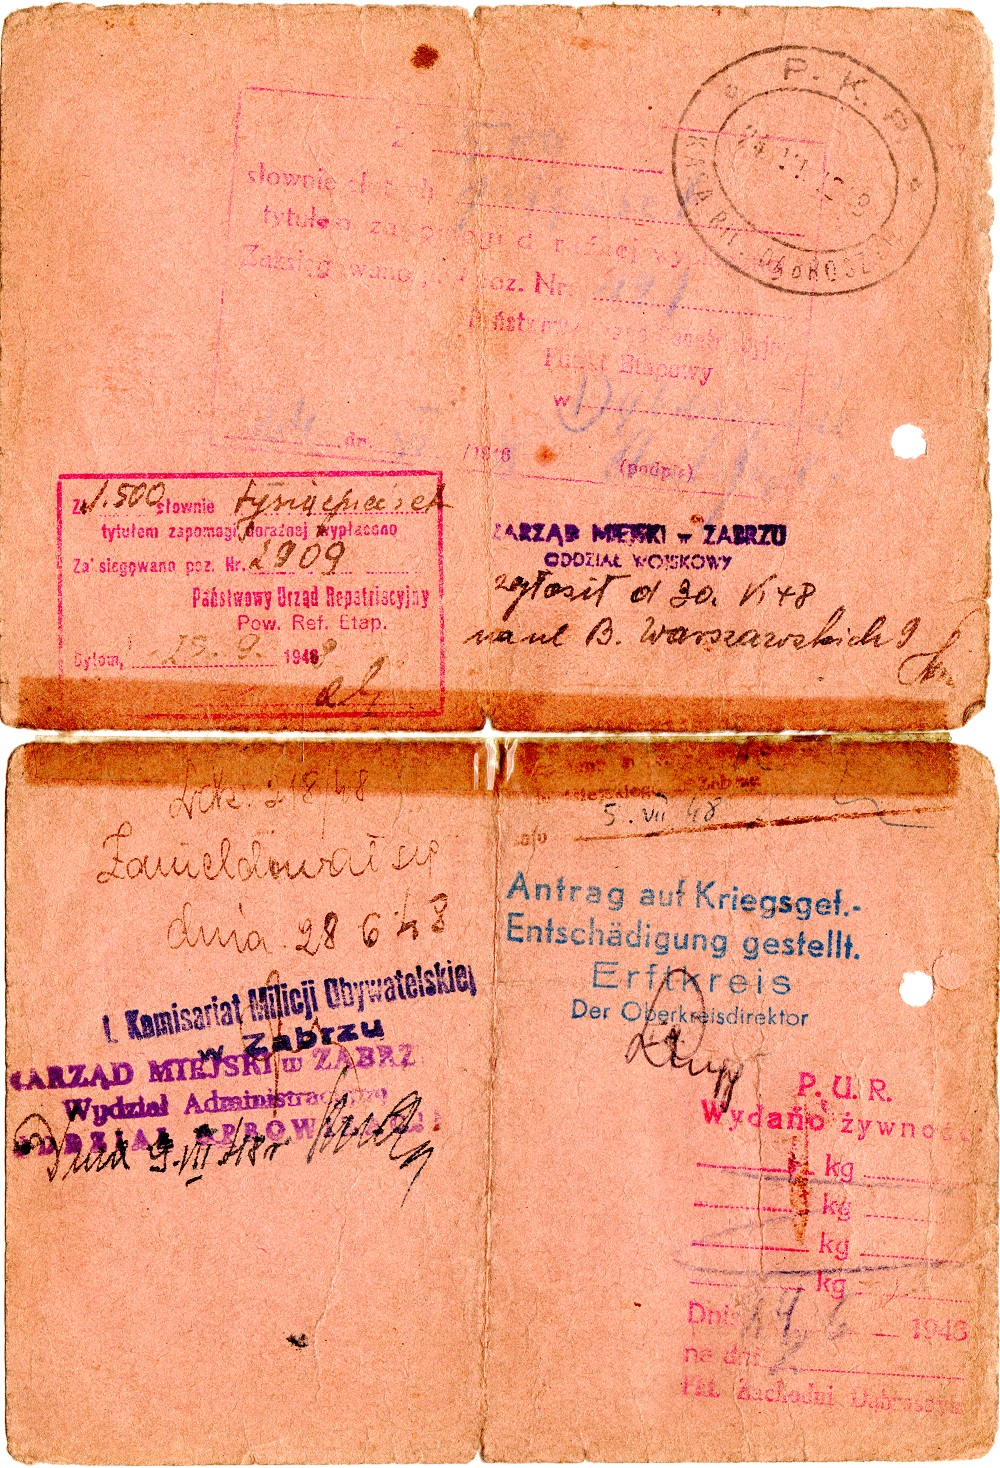 P. K. P
KASA BIL. DĄBROSZYN
Zł
słownie złotych
tytułem zapomogi doraźnej wypłacono
Zaksięgowano pod poz. Nr.
Państwowy Urząd Repatriacyjny
Punkt Etapowy
w
dn. /1948
(podpis)
Zł 1.500 słownie tysiącpięćset
tytułem zapomogi doraźnej wypłacono
Zaksięgowano poz. Nr. 2909
Państwowy Urząd Repatriacyjny
Pow. Ref. Etap.
Bytom, 25. 9. 1948
ZARZĄD MIEJSKI w ZABRZU
ODDZIAŁ WOJSKOWY
zgłosił d 30. VI 48
na ul B. Warszawskich 9
218/48
Zameldował się
dnia 28 6 48
I. Komisariat Milicji Obywatelskiej
w Zabrzu
ZARZĄD MIEJSKI w ZABRZU
Wydział Administracyjny
ODDZIAŁ APROWIZACJI
Dnia 9. VII 48 r
Zabrze
5. VII 48
Antrag auf Kriegsgef.-
Entschädigung gestellt.
Erftkreis
Der Oberkreisdirektor
P. U. R.
Wydano żywność
kg
kg
kg
kg
Dnia 14 6 1948
na dni 2
Pkt. Zachodni Dąbroszyn